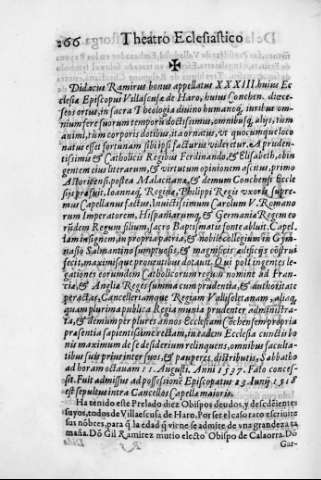 266 Theatro Eclesiastico
✠
Didacus Ramirus bonus appellatus XXXIII huius Ec
clesiæ Episcopus Villascusæ de Haro, huius Conchen. diœce-
seos ortus, in sacra Theologia diuino humanoq; iuribus om-
nium ferè suorum temporũ doctissimus, omnibusq; alijs, tum
animi, tum corporis dotibus, ita ornatus, vt quocumque loco
natus esset fortunam sibi ipsi facturus videretur. A pruden-
tissimis & Catholicis Regibus Ferdinando, & Elisabeth, ob in
gentem eius literarum, & virtutum opinionem ascitus, primo
Astoricensi, postea Malacitanæ, & demum Conchensi Eccle
sijs præfuit. Ioannæq; Reginæ, Philippi Regis vxoris supre-
mus Capellanus factus. Inuictissimum Carolum V. Romano
rum Imperatorem, Hispaniarumq; & Germaniæ Regem eo
rũdem Regum filium, sacro Baptismatis fonte abluit. Capel-
lam insignem, in propria patria, & nobile collegium in Gym-
nasio Salmantino sumptuosa, & magnifice ædificijs cõstrui
fecit, maximisque prouentibus dotauit. Qui post ingentes le
gationes eorumdem Catholicorum regum nomine ad Fran-
ciæ, & Angliæ Reges summa cum prudentia, & authoritate
peractas, Cancellariamque Regiam Vallisoletanam, aliaq;
quam plurima publica Regia munia prudenter administra-
ta, & demum per plures annos Ecclesiam Cõchensem propria
præsentia sapientissimè rectam, in eadem Ecclesia condi is bo
nis maximum de se desiderium relinquens, omnibus faculta-
tibus suis prius inter suos, & pauperes distributis, Sabbatho
ad horam octauam 11. Augusti. Anni 1537. Fato conces-
sit. Fuit admissus ad possesionẽ Episcopatus 23 Iunij 1518
est sepultus intra Cancellos Capellæ maioris.
Ha tenido este Prelado diez Obispos deudos, y descẽdientes
suyos, todos de Villaescusa de Haro. Por ser el caso raro escriuire
sus nõbres, para q̃ la edad q̃ viene se admire de vna grandeza ta
maña. Dõ Gil Ramirez murio electo Obispo de Calaorra. Dõ
Gar-